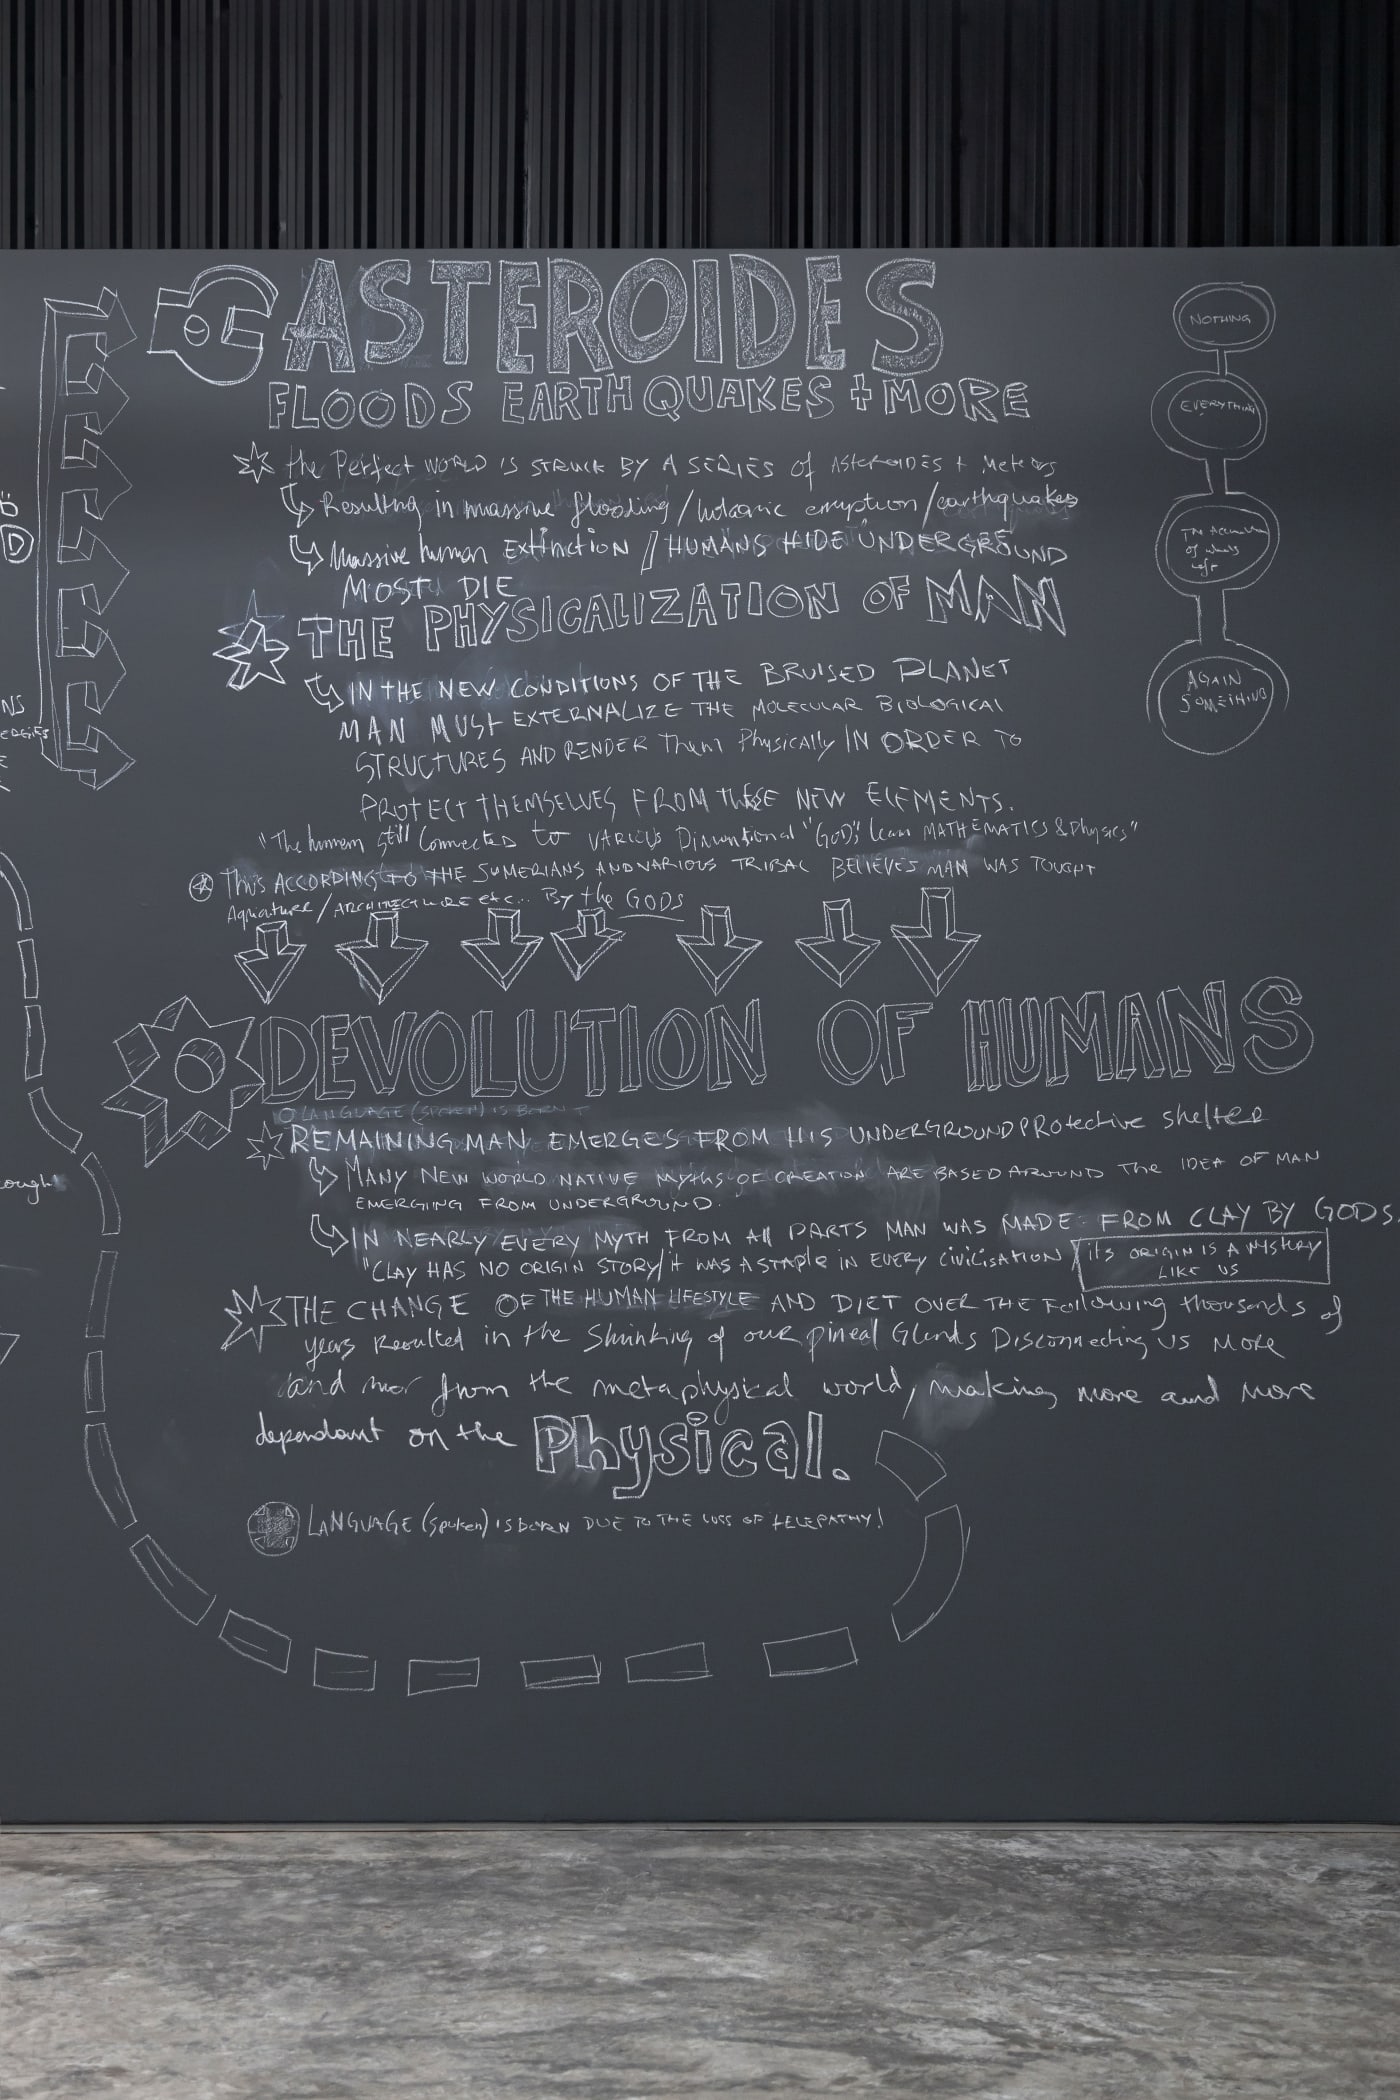 ASTEROIDES
FLOODS EARTHQUAKES + MORE
the Perfect WORLD IS STRUCK BY A SERIES of ASTEROIDES + Meteors
Resulting in massive flooding / volcanic erruption / earthquakes
Massive human EXTINCTION / HUMANS HIDE UNDERGROUND
MOST DIE
THE PHYSICALIZATION OF MAN
IN THE NEW CONDITIONS OF THE BRUISED PLANET
MAN MUST EXTERNALIZE THE MOLECULAR BIOLOGICAL
STRUCTURES AND RENDER Them Physically IN ORDER TO
PROTECT THEMSELVES FROM THESE NEW ELEMENTS.
"The human still Connected to VARIOUS Dimentional "GODS" Learn MATHEMATICS & Physics"
Thus ACCORDING TO THE SUMERIANS AND VARIOUS TRIBAL BELIEVES MAN WAS TOUGHT
/ ARCHITECTURE etc... By the GODS
DEVOLUTION OF HUMANS
LANGUAGE (SPOKEN) IS BORN
REMAINING MAN EMERGES FROM HIS UNDERGROUND PROTECTIVE shelter
MANY NEW WORLD NATIVE MYTHS OF CREATION ARE BASED AROUND THE IDEA OF MAN
EMERGING FROM UNDERGROUND.
IN NEARLY EVERY MYTH FROM All PARTS MAN WAS MADE FROM CLAY BY GODS
"CLAY HAS NO ORIGIN STORY/it WAS A STAPLE IN EVERY CIVILISATION / ITS ORIGIN IS A MYSTERY
LIKE US
THE CHANGE OF THE HUMAN LIFESTYLE AND DIET OVER THE Following thousands of
years Resulted in the Shrinking of our pineal Glands Disconnecting US MORE
and more from the metaphysical world, making more and more
dependant on the Physical.
LANGUAGE (spoken) IS BORN DUE TO THE LOSS OF TELEPATHY!
NOTHING
EVERYTHING
of whats
left
AGAIN
SOMETHING
D
NS
ough